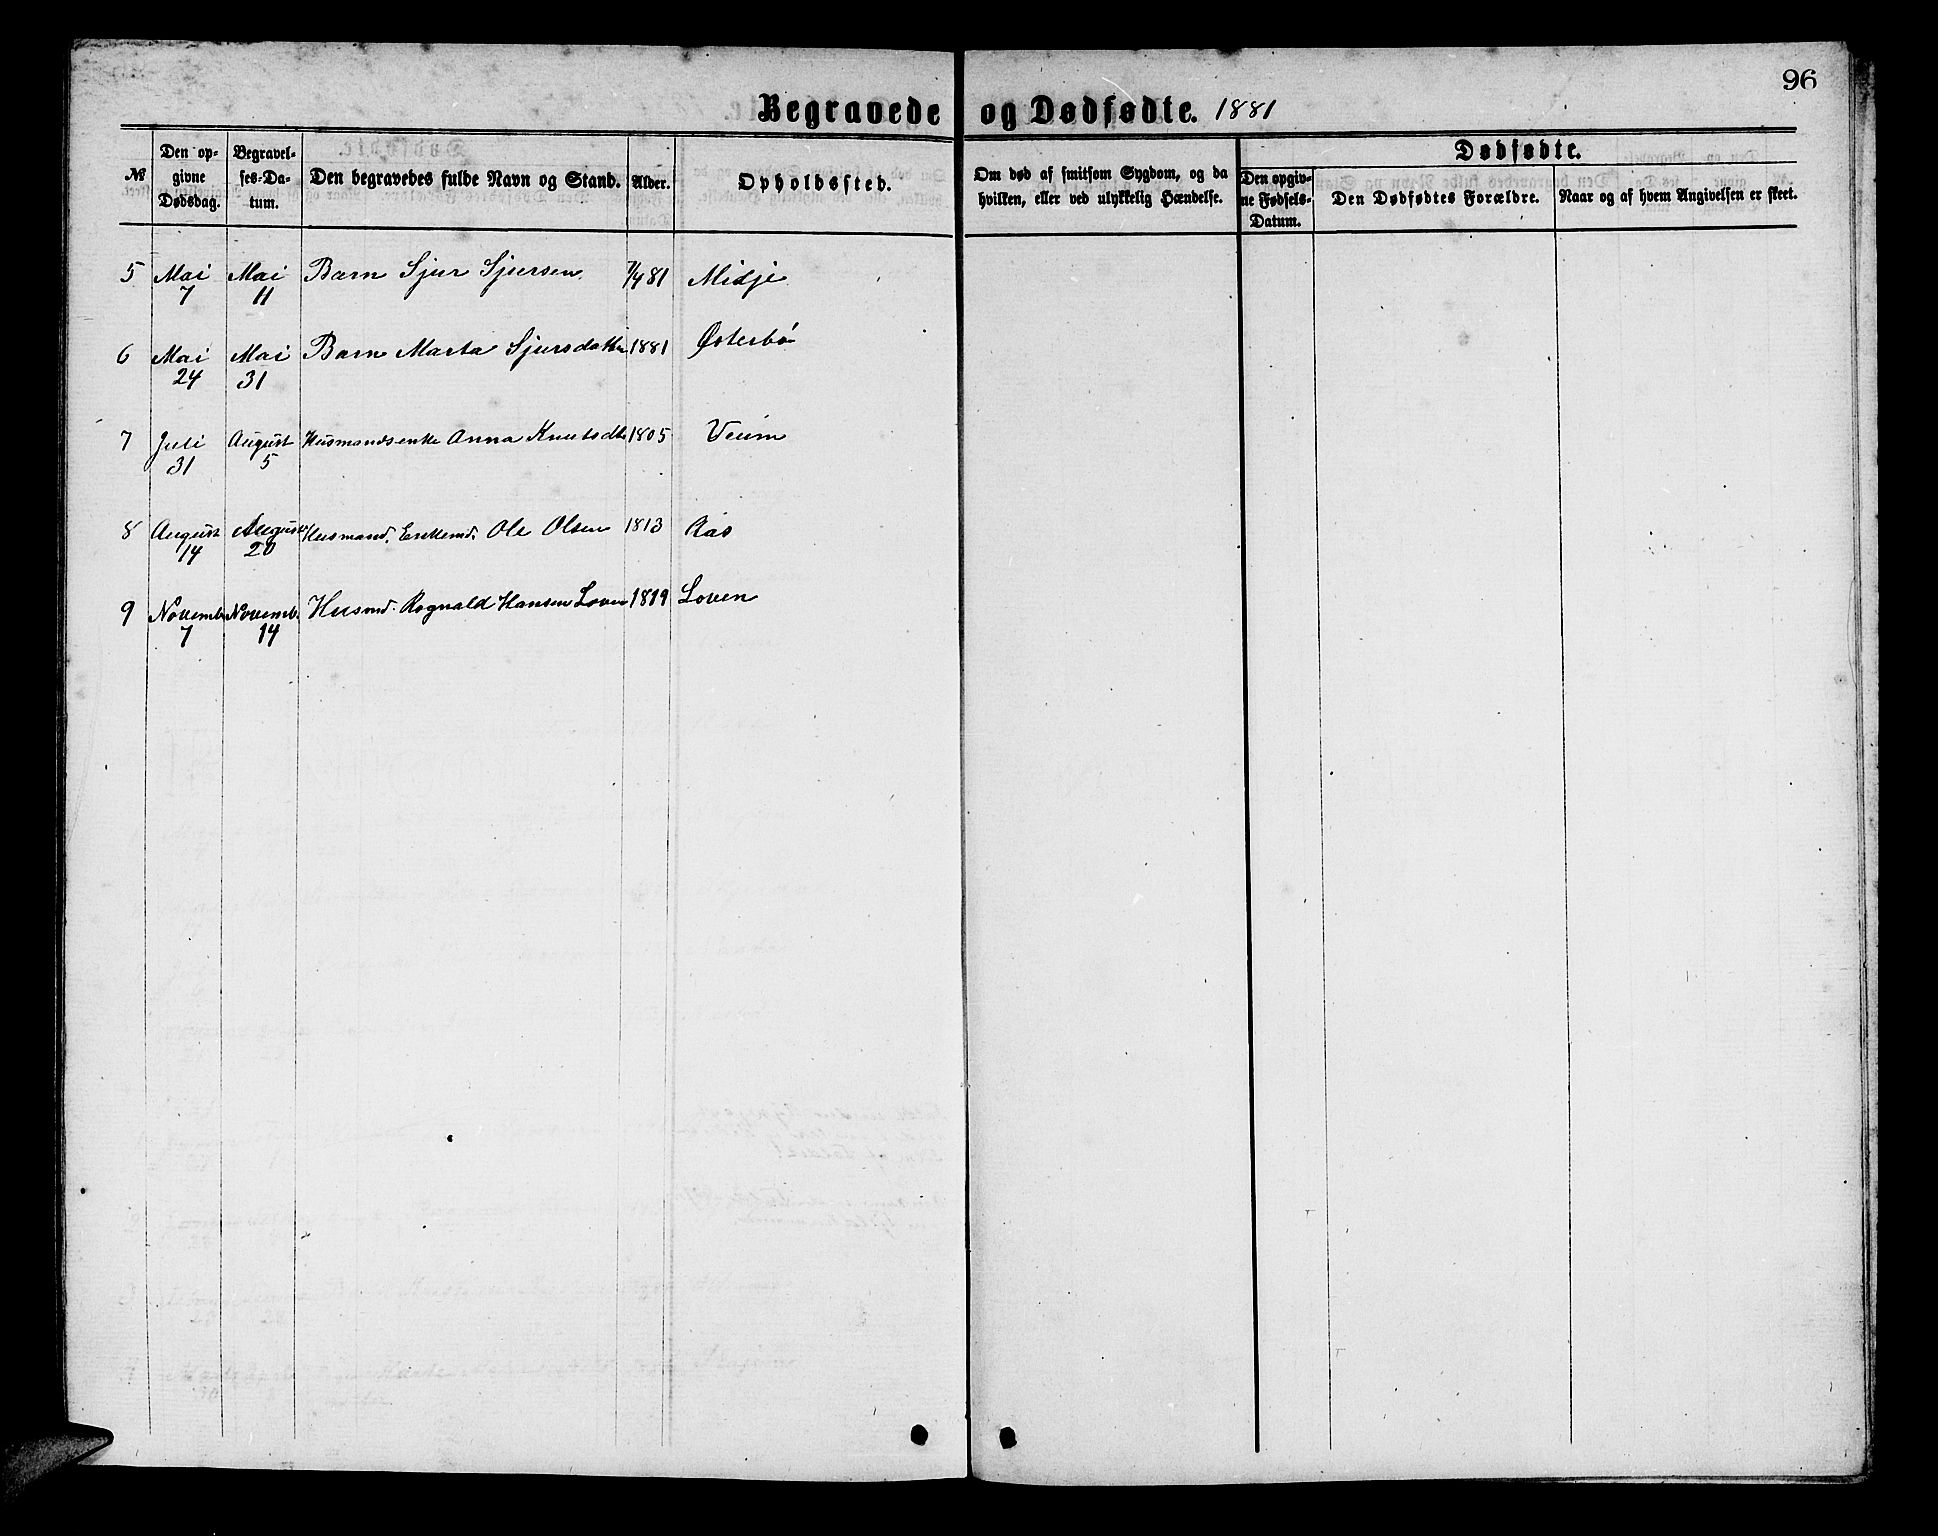 96
Begravede og Dødfødte. 1881
№
Den op-
givne
Dødsdag.
Begravel-
ses-Da-
tum.
Den begravedes fulde Navn og Stand.
Alder.
Opholdssted.
Om død af smitsom Sygdom, og da
hvilken, eller ved ulykkelig Hændelse.
Dødfødte.
Den opgiv-
ne Fødsels-
Datum.
Den Dødfødtes Forældre.
Naar og af hvem Angivelsen er skeet.
5 Mai Mai Barn Sjur Sjursen 7/4 81 Midje
7 11
6 Mai Mai Barn Marta Sjursdatter 1881 Østerbö
24 31
7 Juli August Husmandsenke Anna Knutsdtr 1805 Veum
31 5
8 August August Husmand. Enkemd. Ole Olsen 1813 Aas
14 20
9 Novemb. Novemb. Husmd. Rognald Hansen Loven 1819 Loven
7 14